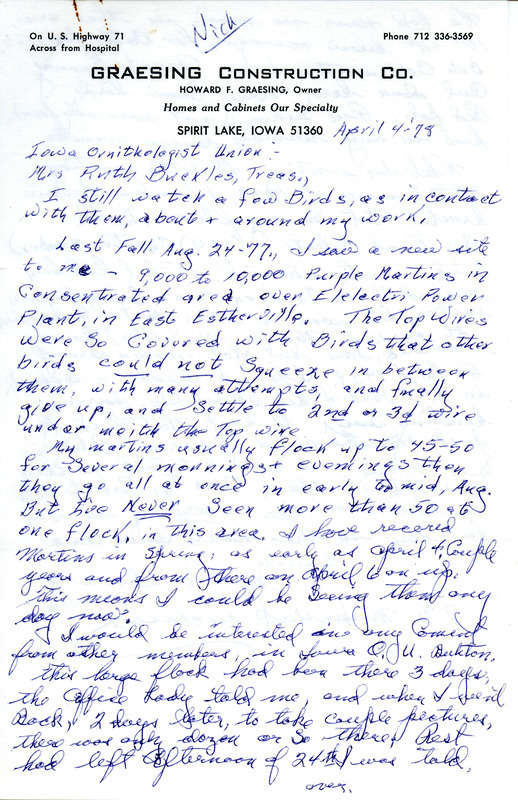 Nick
On U. S. Highway 71
Across from Hospital
Phone 712 336-3569
GRAESING CONSTRUCTION CO.
HOWARD F. GRAESING, Owner
Homes and Cabinets Our Specialty
SPIRIT LAKE, IOWA 51360 April 4-'78
Iowa Ornithologist Union:-
Mrs Ruth Buckles, Treas.,
I still watch a few Birds, as in contact
with them, about + around my work.
Last Fall Aug. 24-77, I saw a new site
to me - 9,000 to 10,000 Purple Martins in
Consentrated area over Elelectri Power
Plant, in East Estherville. The Top Wires
were so Covered with Birds that other
birds could not Squeeze in between
them, with many attempts, and finally
give up, and Settle to 2nd or 3d wire
undar meith the Top wire
My martins usually flock up to 45-50
for Several mornings + evenings then
they go all at once in early to mid, Aug.
But I've Never Seen more than 50 at
one flock, in this area. I have recored
Martins in Spring, as early as April 4, Couple
years and from there on April 6 on up.
This means I could be Seeing them any
day now.
I would be interested in any Coment
from other members, in Iowa O. U. Buliton.
this large flock had ben there 3 days.
the Office Lady told me, and when I went
Back, 2 days later, to take couple pictures,
there was only dozen or So there, Rest
had left afternoon of 24th I was told.
over.